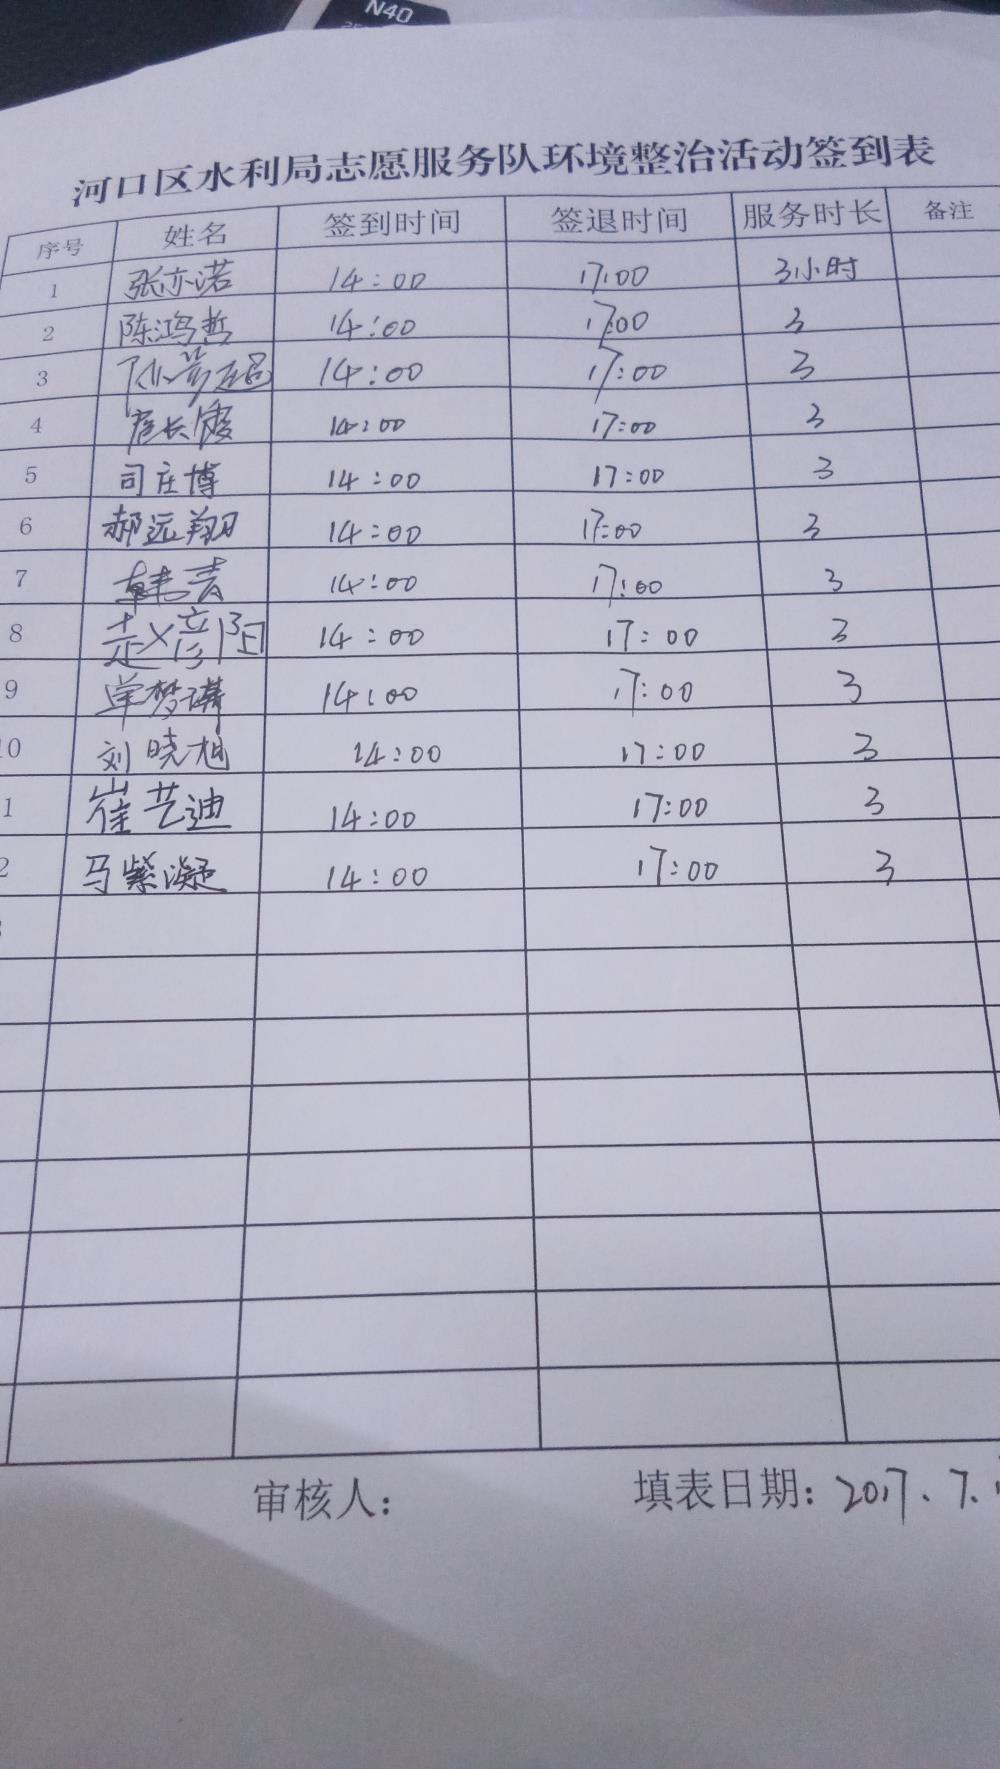 N40
河口区水利局志愿服务队环境整治活动签到表
序号 姓名 签到时间 签退时间 服务时长 备注
1 张亦诺 14:00 17:00 3小时
2 陈鸿哲 14:00 17:00 3
3 14:00 17:00 3
4 14:00 17:00 3
5 司庄博 14:00 17:00 3
6 郝远翔 14:00 17:00 3
7 韩青 14:00 17:00 3
8 赵彦阳 14:00 17:00 3
9 单梦琪 14:00 17:00 3
0 刘晓旭 14:00 17:00 3
1 崔艺迪 14:00 17:00 3
2 马紫凝 14:00 17:00 3
审核人: 填表日期: 2017.7.